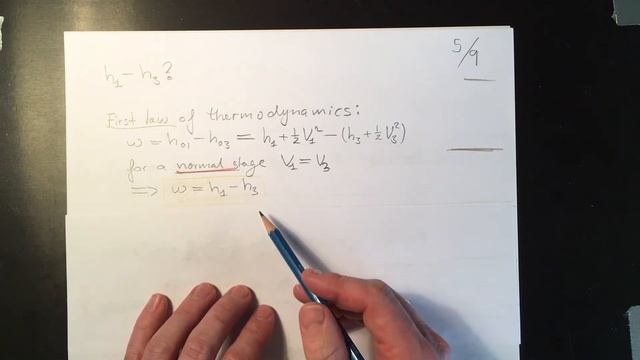 5/9
h₁ − h₃?
First law of thermodynamics:
w = h₀₁ − h₀₃ = h₁ + ½V₁² − (h₃ + ½V₃²)
for a normal stage V₁ = V₃
⟹ w = h₁ − h₃